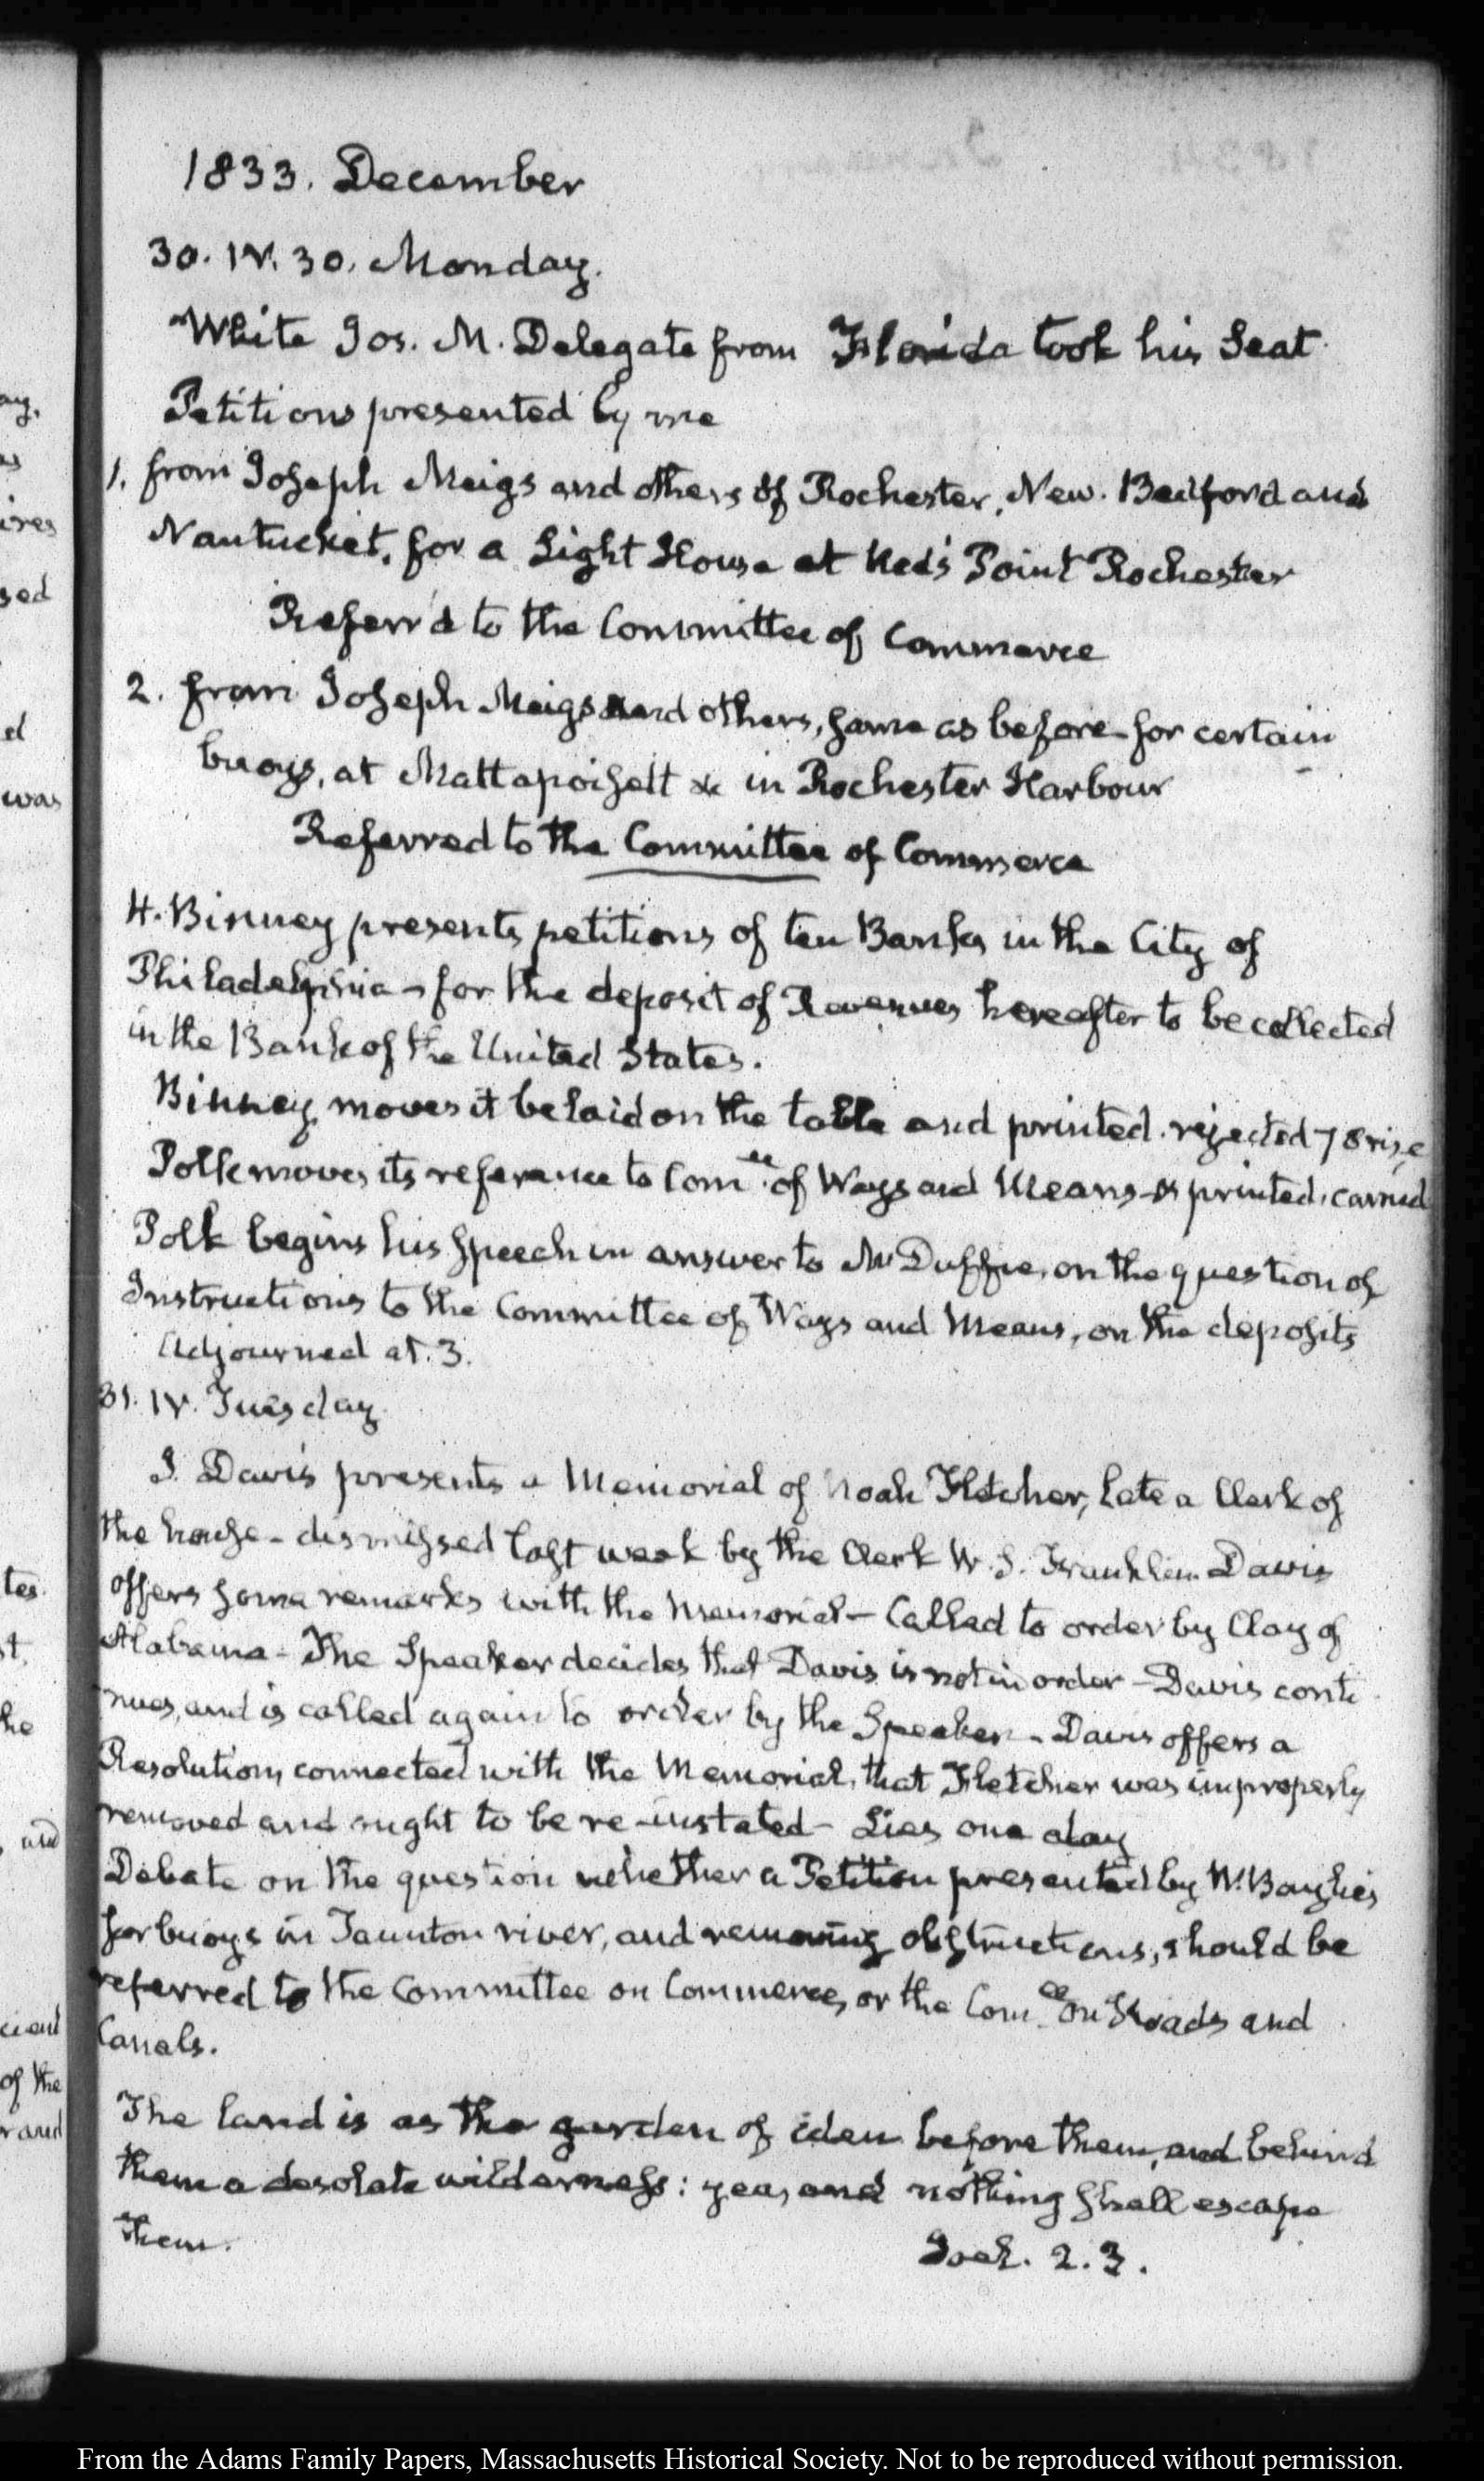 1833. December
30. IV. 30. Monday.
White Jos. M. Delegate from Florida took his Seat.
Petitions presented by me
1. from Joseph Meigs and others of Rochester, New-Bedford and
Nantucket, for a Light House at Ned's Point Rochester
Referr'd to the Committee of Commerce
2. from Joseph Meigs and others, same as before for certain
buoys, at Mattapoisett &c in Rochester Harbour
Referred to the Committee of Commerce
H. Binney presents petitions of ten Banks in the City of
Philadelphia - for the deposit of Revenues hereafter to be collected
in the Bank of the United States.
Binney moves it be laid on the table and printed. rejected 78 rise
Polk moves its reference to Com.ee of Ways and Means & printed. carried
Polk begins his Speech in answer to McDuffie, on the question of
Instructions to the Committee of Ways and Means, on the deposits
Adjourned at. 3.
31. IV. Tuesday.
J. Davis presents a Memorial of Noah Fletcher, late a Clerk of
the house - dismissed last week by the Clerk W. S. Franklin. Davis
offers some remarks with the Memorial - Called to order by Clay of
Alabama - The Speaker decides that Davis is not in order - Davis conti
nues, and is called again to order by the Speaker - Davis offers a
Resolution, connected with the Memorial, that Fletcher was improperly
removed and ought to be re-instated - Lies one day
Debate on the question whether a Petition presented by W. Baylies
for buoys in Taunton river, and removing obstructions, should be
referred to the Committee on Commerce, or the Com.ee on Roads and
Canals.
The land is as the garden of eden before them, and behind
them a desolate wilderness: yea, and nothing shall escape
them.
Joel. 2. 3.
ay.
as
ires
sed
ed
was
tes.
st.
he
, and
of the
r and
From the Adams Family Papers, Massachusetts Historical Society. Not to be reproduced without permission.